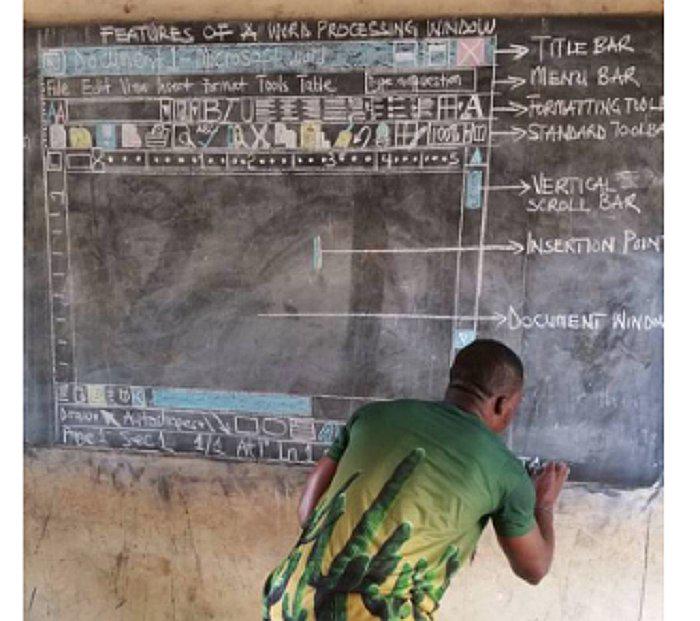 FEATURES OF A WORD PROCESSING WINDOW
Document 1 - Microsoft word
TITLE BAR
File Edit View Insert Format Tools Table
Type a question
MENU BAR
B I U
A
FORMATTING TOOLB
100%
STANDARD TOOLBA
1 2 3 4 5
VERTICAL
SCROLL BAR
INSERTION POIN
DOCUMENT WINDOW
Draw Autoshapes
Page 1 Sec 1 1/1 At 1" Ln 1